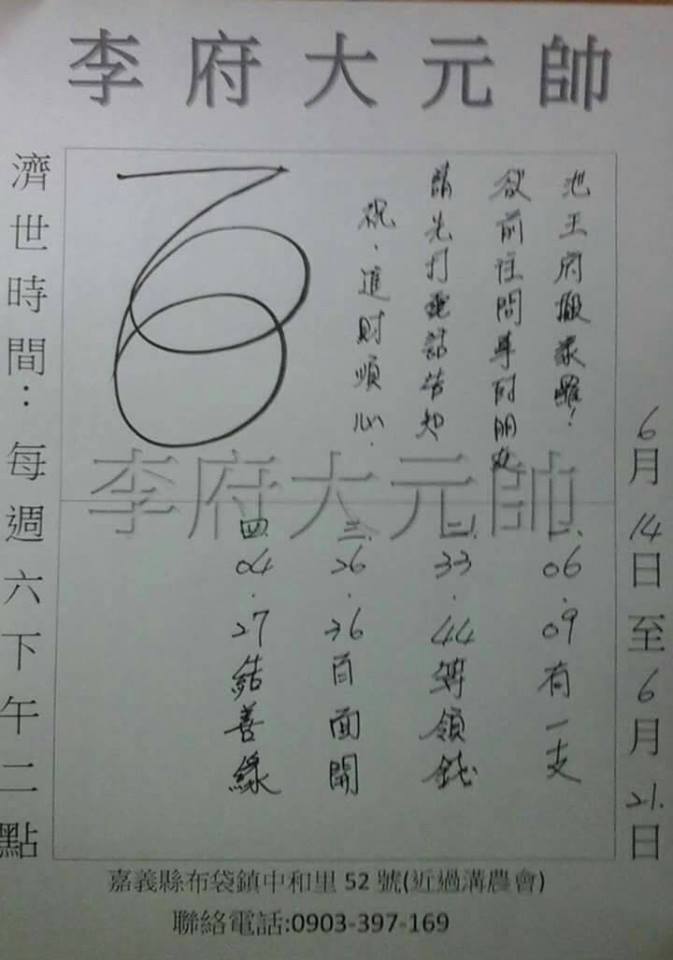 李府大元帥
6月14日至6月21日
池王府搬家囉!
欲前往問事的朋友
請先打電話告知
祝.進財順心.
李府大元帥
一、06.09有一支
二、33.44準領錢
三、26.36百面開
四、04.27結善緣
濟世時間：每週六下午二點
嘉義縣布袋鎮中和里 52 號(近過溝農會)
聯絡電話:0903-397-169